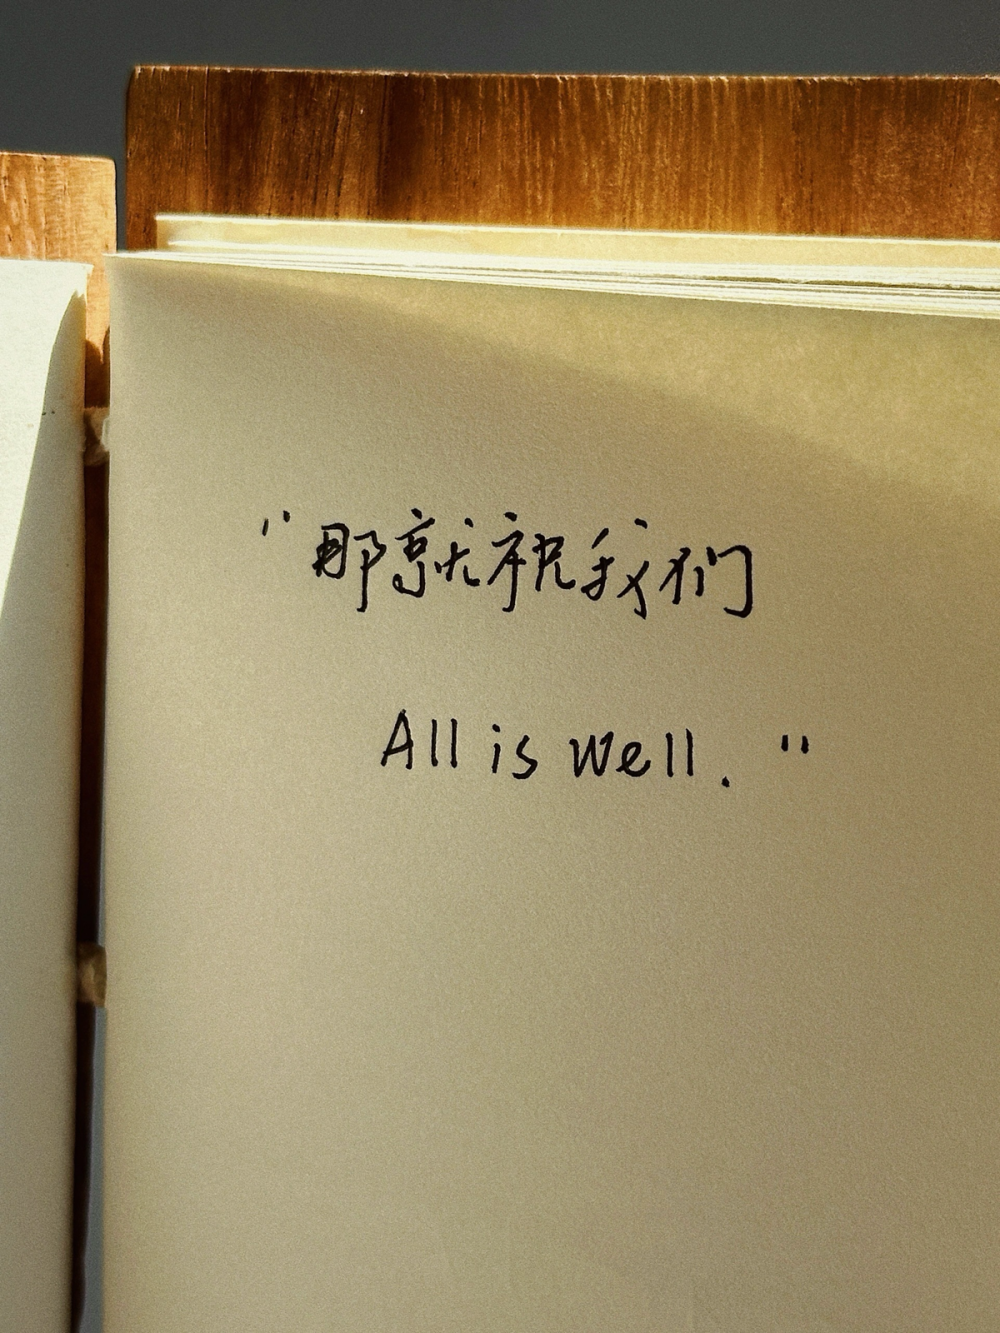 "那就祝我们
All is well."